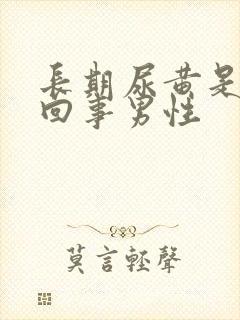 長期尿黄是
回事男性
莫言輕聲